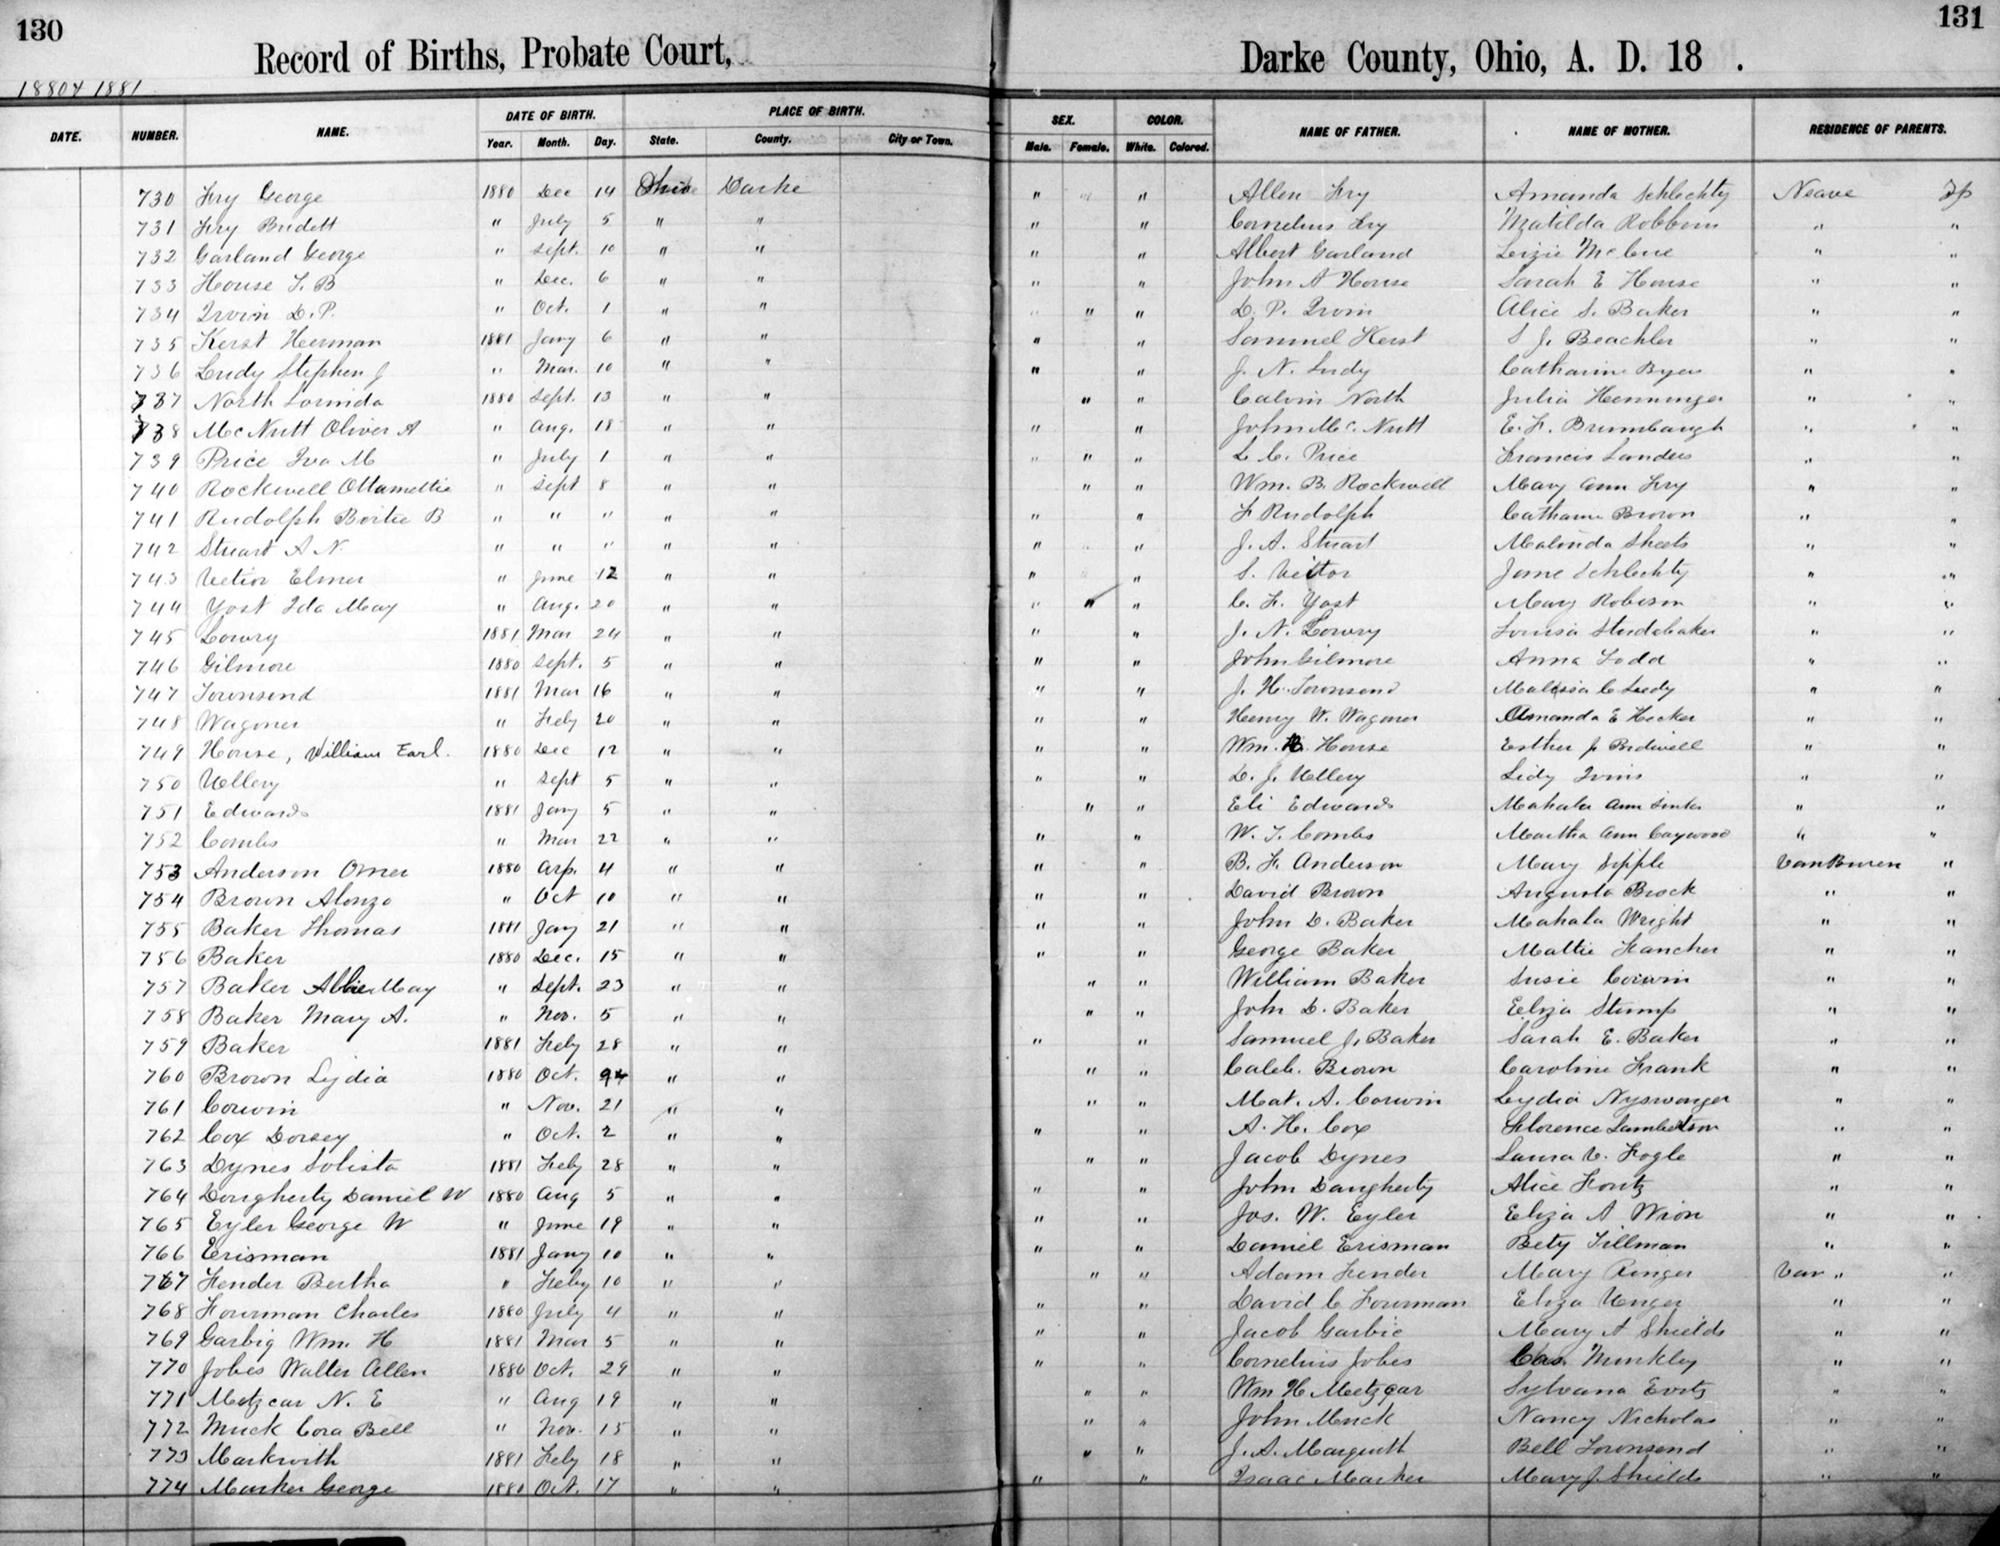 130
131
Record of Births, Probate Court,
Darke County, Ohio, A. D. 18 .
1880 & 1881
DATE. NUMBER. NAME. DATE OF BIRTH. PLACE OF BIRTH. SEX. COLOR. NAME OF FATHER. NAME OF MOTHER. RESIDENCE OF PARENTS.
Year. Month. Day. State. County. City or Town. Male. Female. White. Colored.
730 Fry George 1880 Dec 14 Ohio Darke " " Allen Fry Amanda Schlechty Neave Tp
731 Fry Bridett " July 5 " " " " Cornelius Fry Matilda Robbins " "
732 Garland George " Sept. 10 " " " " Albert Garland Lizzie McCue " "
733 House T. B " Dec. 6 " " " " John A House Sarah E House " "
734 Irvin D. P. " Oct. 1 " " " " D. P. Irvin Alice S. Baker " "
735 Kerst Herman 1881 Jany 6 " " " " Sammel Kerst S J. Beachler " "
736 Ludy Stephen J " Mar. 10 " " " " J. N. Ludy Catharine Byers " "
737 North Lorinda 1880 Sept. 13 " " " " Calvin North Julia Henninger " "
738 McNutt Oliver A " Aug. 18 " " " " John Mc. Nutt E. F. Brumbaugh " "
739 Price Iva M " July 1 " " " " L. C. Price Francis Landes " "
740 Rockwell Ottamettie " Sept 8 " " " " Wm. B. Rockwell Mary Ann Fry " "
741 Rudolph Bertie B " " " " " " " F Rudolph Catharine Brown " "
742 Stuart A N. " " " " " " " J. A. Stuart Malinda Sheets " "
743 Vetior Elmer " June 12 " " " " S. Vettor Jane Schlechty " "
744 Yost Ida May " Aug. 20 " " " " C. F. Yost Mary Robison " "
745 Lowry 1881 Mar 24 " " " " J. N. Lowry Louisa Studebaker " "
746 Gilmore 1880 Sept. 5 " " " " John Gilmore Anna Todd " "
747 Townsend 1881 Mar 16 " " " " J. H. Townsend Malissia C Ludy " "
748 Wagoner " Feby 20 " " " " Henry W. Wagoner Amanda E Hecker " "
749 House, William Earl. 1880 Dec 12 " " " " Wm. H. House Esther J. Bidwell " "
750 Ullery " Sept 5 " " " " D. J. Ullery Lidy Ivins " "
751 Edwards 1881 Jany 5 " " " " Eli Edwards Mahala Ann Sinks " "
752 Combs " Mar 22 " " " " W. T. Combs Martha Ann Caywood " "
753 Anderson Omer 1880 Arp. 4 " " " " B. F. Anderson Mary Sipple VanBuren "
754 Brown Alonzo " Oct 10 " " " " David Brown Augusta Brock " "
755 Baker Thomas 1881 Jay 21 " " " " John D. Baker Mahala Wright " "
756 Baker 1880 Dec. 15 " " " " George Baker Mattie Fancher " "
757 Baker Abbie May " Sept. 23 " " " " William Baker Susie Corwin " "
758 Baker Mary A. " Nov. 5 " " " " John D. Baker Eliza Stump " "
759 Baker 1881 Feby 28 " " " " Samuel J. Baker Sarah E. Baker " "
760 Brown Lydia 1880 Oct. 24 " " " " Caleb. Brown Caroline Frank " "
761 Corwin " Nov. 21 " " " " Mat. A. Corwin Lydia Nyswonger " "
762 Cox Dorsey " Oct. 2 " " " " A. H. Cox Florence Lambertson " "
763 Dynes Solista 1881 Feby 28 " " " " Jacob Dynes Laura V. Fogle " "
764 Dougherty Daniel W 1880 Aug 5 " " " " John Daugherty Alice Fontz " "
765 Eyler George W " June 19 " " " " Jos. W. Eyler Eliza A Wion " "
766 Erisman 1881 Jany 10 " " " " Daniel Erisman Bety Tillman " "
767 Fender Bertha " Feby 10 " " " " Adam Fender Mary Ringer Van " "
768 Fourman Charles 1880 July 4 " " " " David C Fourman Eliza Unger " "
769 Garbig Wm. H 1881 Mar 5 " " " " Jacob Garbic Mary A Shields " "
770 Jobes Walter Allen 1880 Oct. 29 " " " " Cornelius Jobes Cas. Munkley " "
771 Metzcar N. E " Aug 19 " " " " Wm H Metzgar Sylvana Evitz " "
772 Muck Cora Bell " Nov. 15 " " " " John Muck Nancy Nicholas " "
773 Markwith 1881 Feby 18 " " " " J. A. Marquith Bell Townsend " "
774 Marker George 1880 Oct. 17 " " " " Isaac Marker Mary J. Shields " "